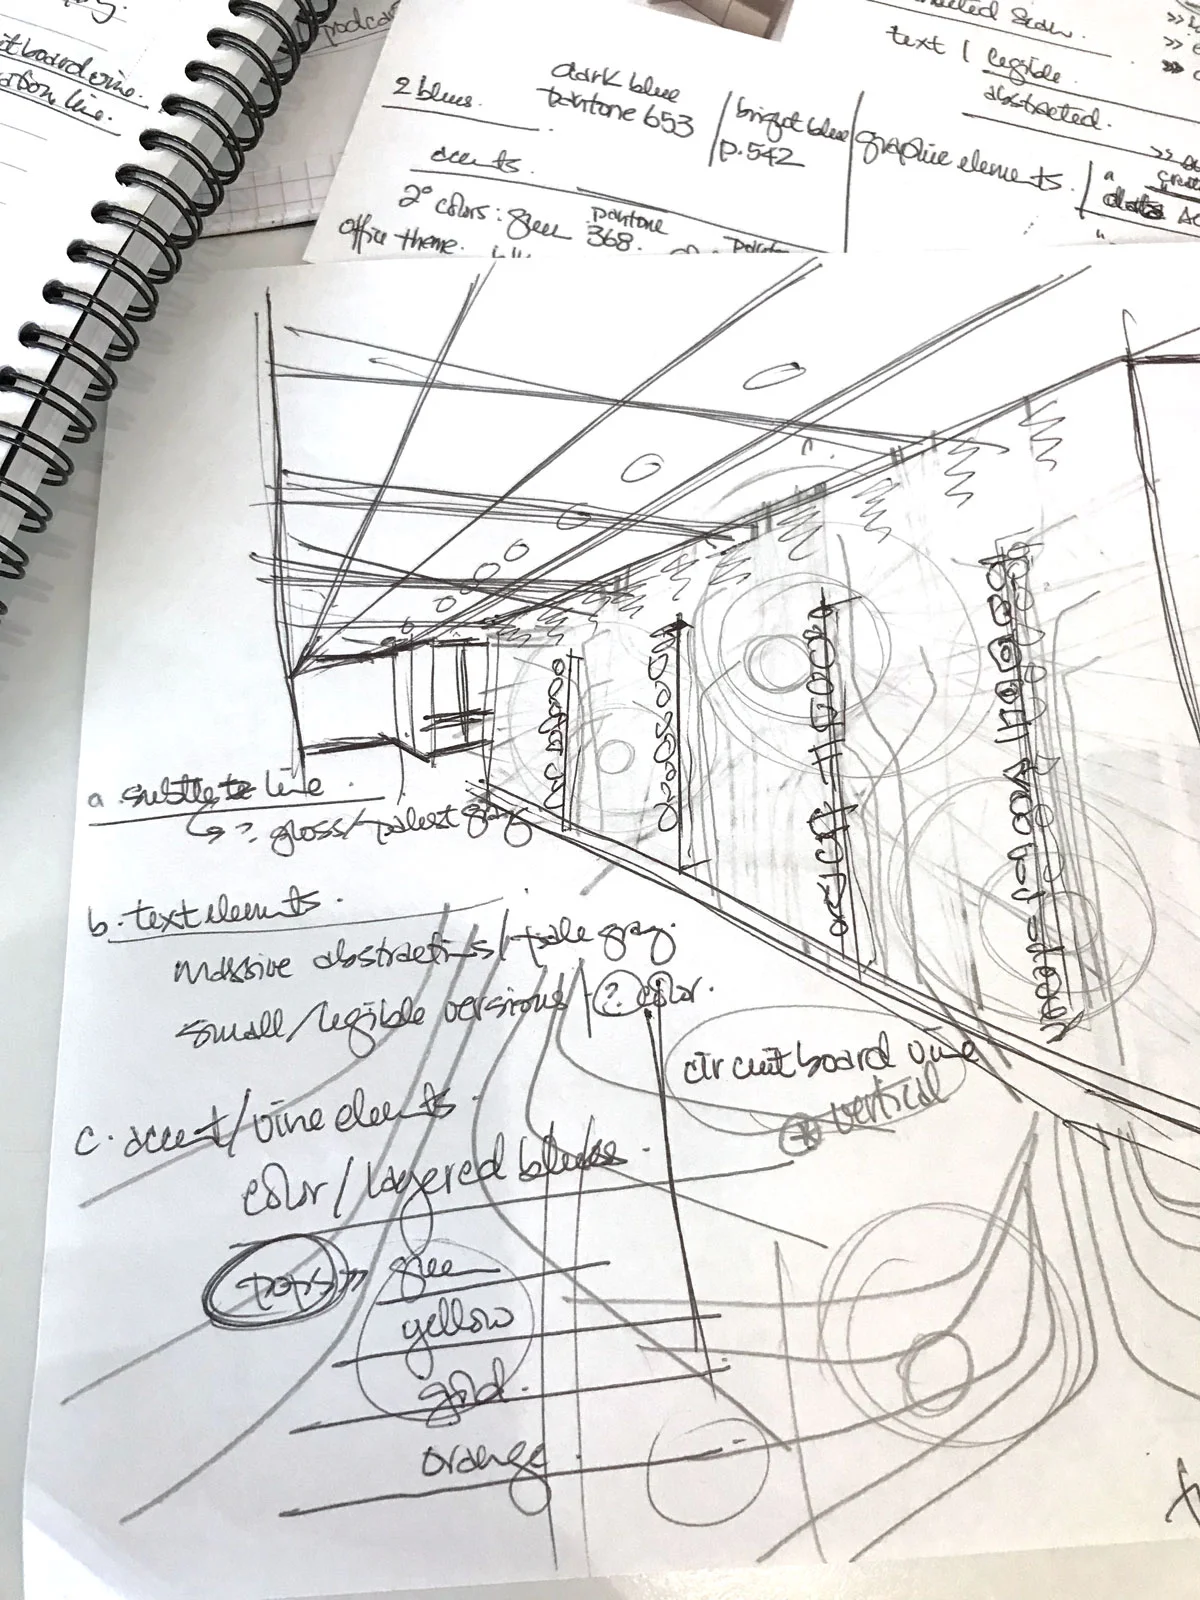 podcas
it board vine.
2 blues.
dark blue
pantone 653
bright blue
p.542
graphic elements.
text | legible
abstracted.
accents.
2° colors: green pantone 368.
office theme.
a. subtle line
? gloss/palest gray
b. text elements.
massive abstractions/pale gray.
small/legible versions | 2 color.
circuit board vine
* vertical
c. accent/vine elements.
color/layered blues.
pops >> green
yellow
gold.
orange